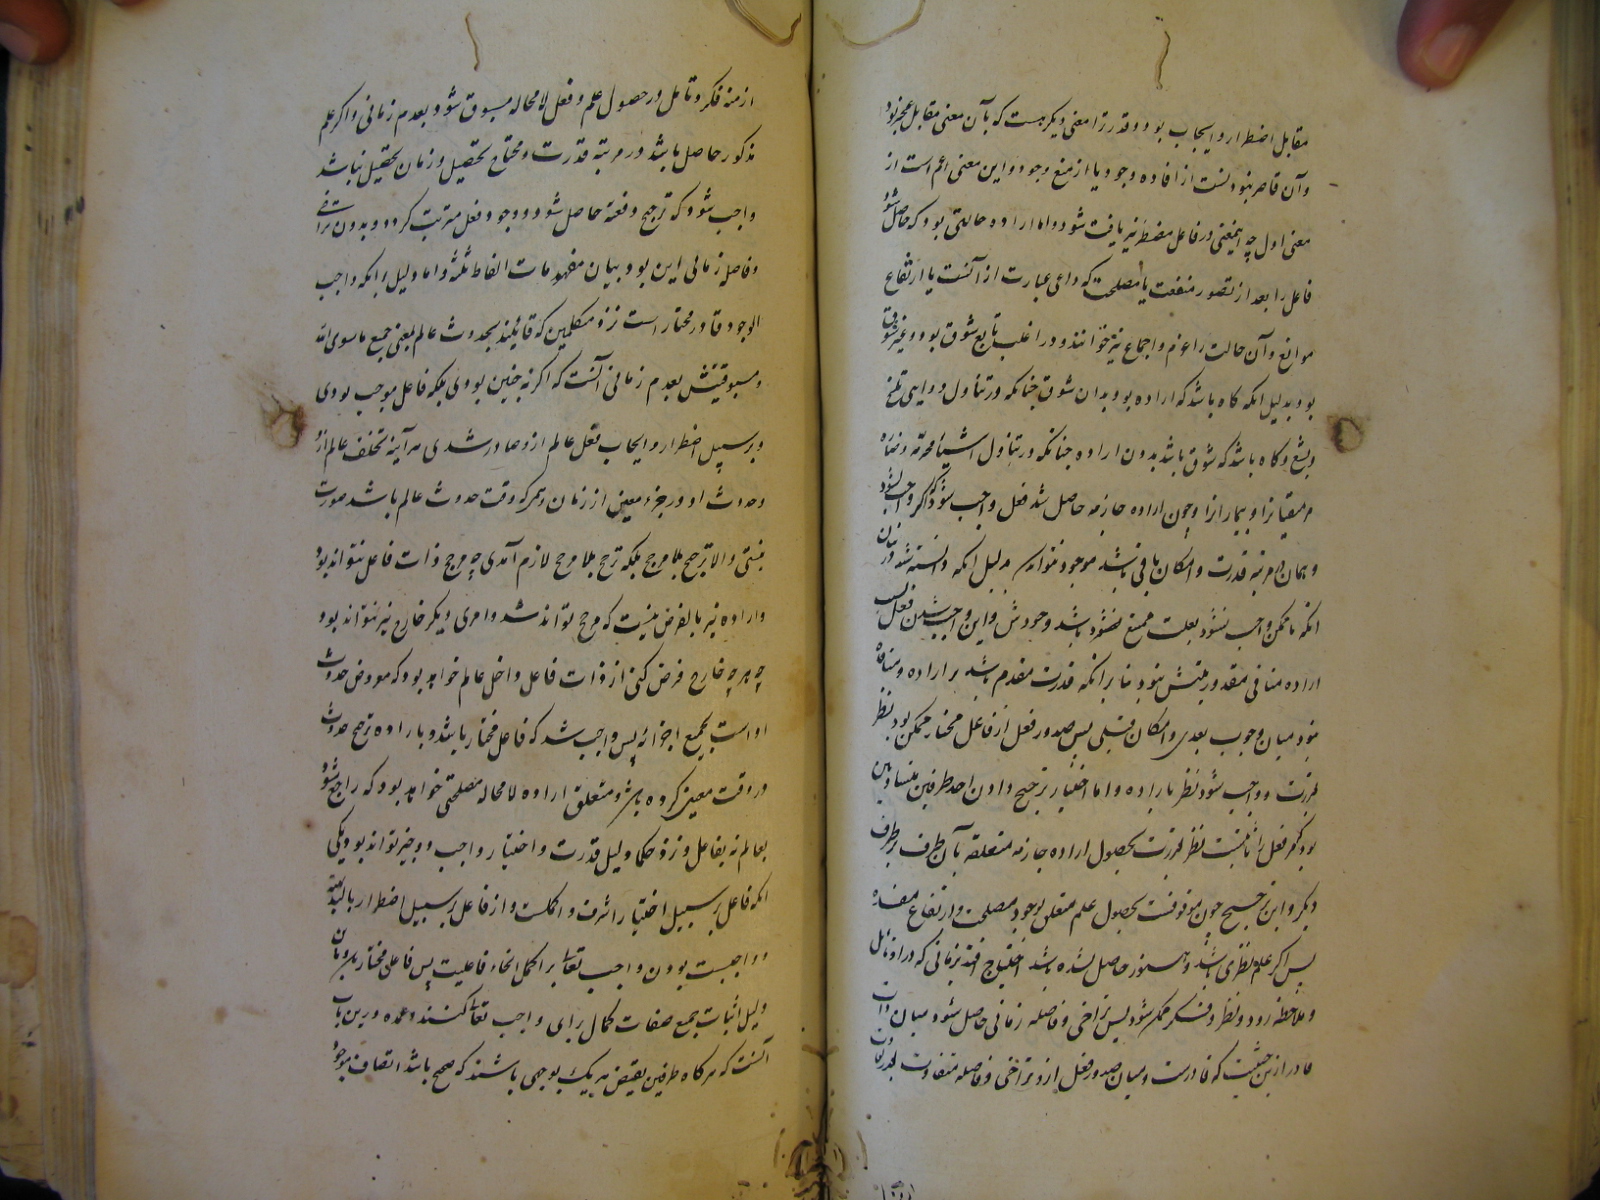 مقابل اضطرار و ایجاب بود و قدرت را معنی دیگر هست که بآن معنی مقابل عجز بود
و آن قاصر نبودنست از افاده وجود یا از منع وجود و این معنی اعم است از
معنی اول چه اینمعنی در فاعل مضطر نیز یافت شود و اما اراده حالتی بود که حاصل شود
فاعل را بعد از تصور منفعت یا مصلحت که داعی عبارت از آنست یا ارتفاع
موانع و آن حالت را عزم و اجماع نیز خوانند و در اغلب تابع شوق بود و غیر شوق
بود بدلیل انکه کاه باشد که اراده بود بدان شوق چنانکه در تناول دوایی تلخ
و بشع و کاه باشد که شوق باشد بدون اراده چنانکه در تناول اشیاء محرمه و ضاره
مر متقیانرا و بیمارانرا و چون اراده جازمه حاصل شد فعل واجب شود که اکر واجب نشود
و همان در مرتبه قدرت و امکان باقی باشد موجود نتواند بدلیل انکه دانسته شد در بیان
انکه تا ممکن واجب نشود بعلت ممتنع نشود باشد وجودش و این واجب شدن فعل بسبب
اراده منافی مقدوریتش نبود بنا بر انکه قدرت مقدم باشد بر اراده و منافاة
نبود میان وجوب بعدی و امکان قبلی پس صدور فعل از فاعل مختار ممکن بود بنظر
قدرت و واجب شود نظر باراده و اما اختیار ترجیح دادن احد طرفین متساویین
بود که فعل را ثابتست نظر بقدرت بحصول اراده جازمه متعلقه بآن طرف بر طرف
دیکر و این ترجیح چون موقوفست بحصول علم متعلق بوجود مصلحت و ارتفاع مفسده
پس اکر علم نظری باشد و هنوز حاصل نشده باشد احتیاج افتد بزمانی که در او تامل
و ملاحظه رود و نظر و فکر ممکن شود پس تراخی و فاصله زمانی حاصل شود میان ذات
قادر از این حیثیت که قادرست و میان صدور فعل از و تراخی و فاصله متفاوت بقدر تفاوت
ازمنه فکر و تامل در حصول علم و فعل لا محاله مسبوق شود بعدم زمانی و اکر علم
مذکور حاصل باشد در مرتبه قدرت و محتاج بتحصیل و زمان تحصیل نباشد
واجب شود که ترجیح دفعة حاصل شود و وجود فعل مترتب کردد و بدون تراخی
و فاصله زمانی این بود بیان مفهومات الفاظ ثلثه و اما دلیل برانکه واجب
الوجود قادر مختار است نزد متکلمین که قائلند بحدوث عالم بمعنی جمیع ما سوی الله
و مسبوقیتش بعدم زمانی آنست که اکر نه چنین بودی بلکه فاعل موجب بودی
و بر سبیل اضطرار و ایجاب فعل عالم ازو صادر شدی هر آینه تخلف عالم ازو
و حدوث او در جزء معین از زمان و هم که وقت حدوث عالم باشد صورت
نبستی والا ترجیح بلا مرجح بلکه ترجح بلا مرجح لازم آمدی چه مرجح ذات فاعل نتواند بود
و اراده نیز بالفرض نیست که مرجح تواند شد و امری دیکر خارج نیز نتواند بود
چه هر چه خارج فرض کنی از ذات فاعل داخل عالم خواهد بود که مفروض حدوث
او است بجمیع اجزائه پس واجب شد که فاعل مختار باشد و باراده ترجیح حدوث
در وقت معین کرده باشد و متعلق اراده لا محاله مصلحتی خواهد بود که راجع شود
بعالم نه بفاعل و نزد حکما دلیل قدرت و اختیار واجب دو چیز تواند بود یکی
انکه فاعل بر سبیل اختیار اشرف و اکملست از فاعل بر سبیل اضطرار بالبدیهه
و واجبست بودن واجب تعالی بر اکمل انحاء فاعلیت پس فاعل مختار باشد و بان
دلیل اثبات جمیع صفات کمال برای واجب تعالی کنند و عمده درین باب
آنست که هرکاه طرفین نقیض هر یک بوجهی باشند که صحیح باشد اتصاف موجود